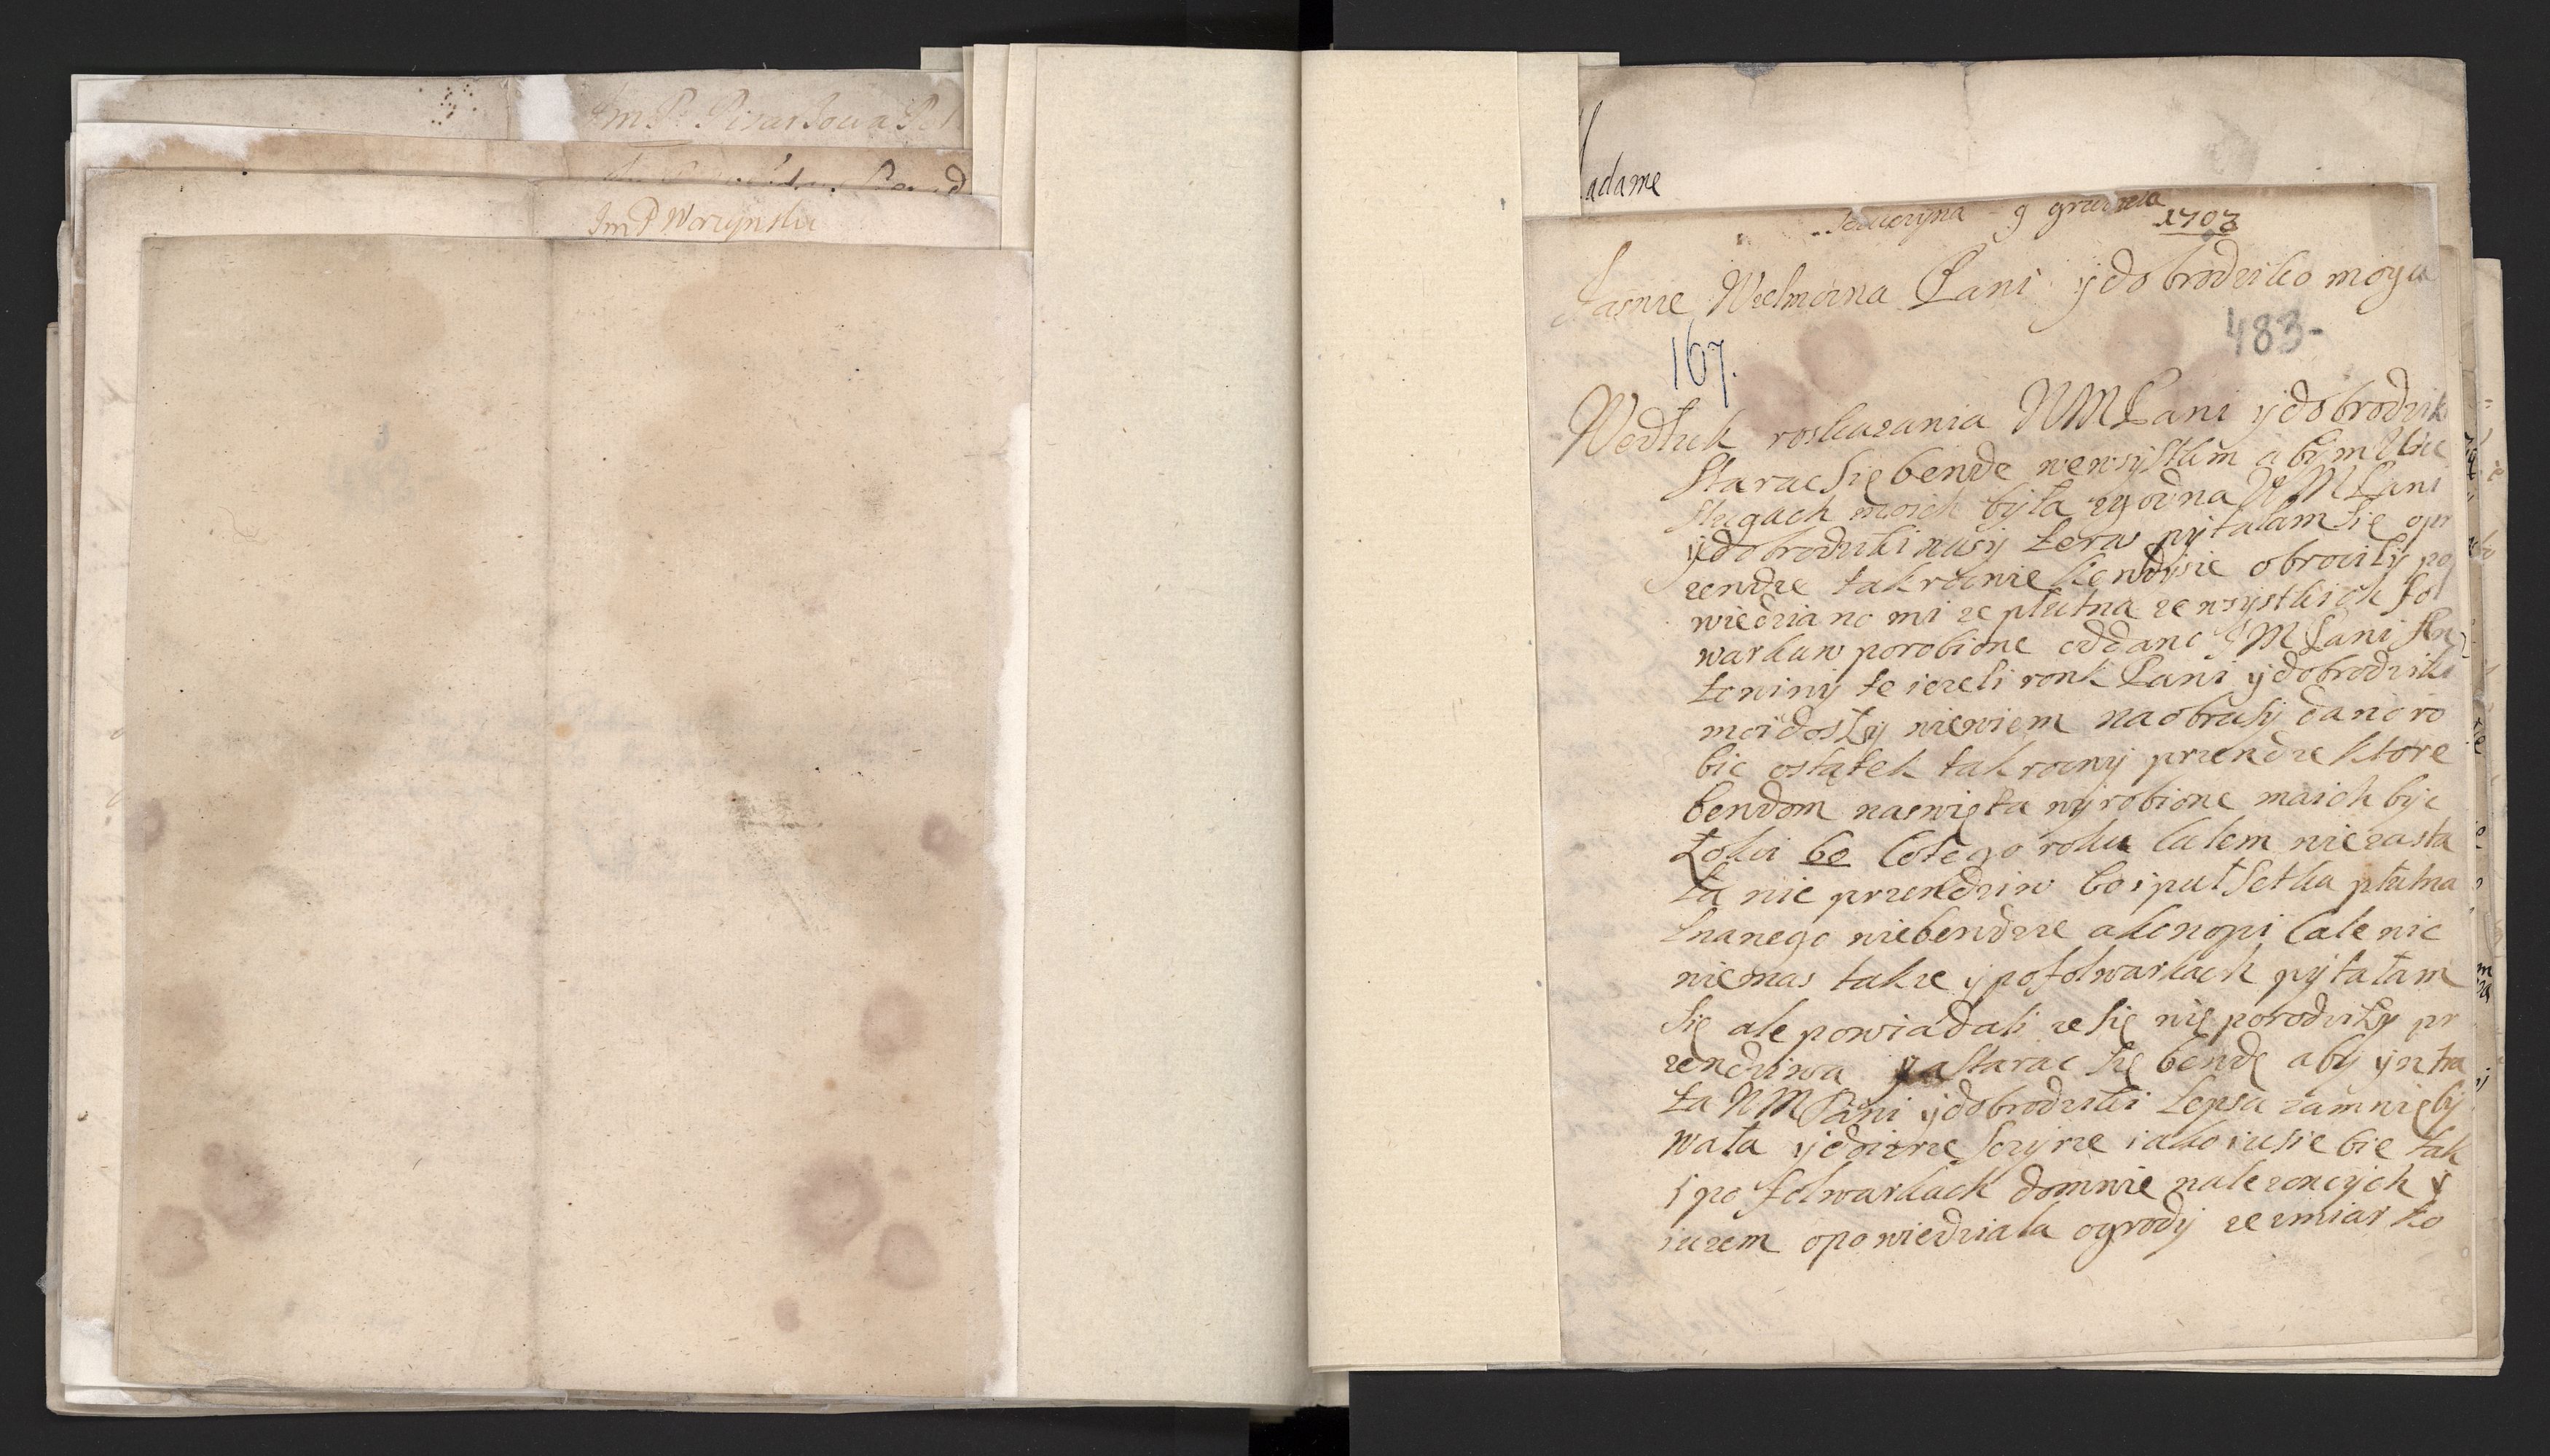 Im P Pisarzowa
Im P Worzynska
adame
9 grudnia
1703
Jasnie Wielmozna Pani y dobrodziko moya
483-
167.
Wedłuk roskazania WMPani y dobrodzik
starac się bende wewsystkim abym
slugach moich była zgodna WMPani
y dobrodziki teras pytałam się o pr
zendze takrocnie kendysie obrociły po
wiedziano mi ze płutna ze wsystkich fol
warkuw porobione oddano JMPani
te iezeli ronk Pani y dobrodziki
moi dosły niewiem na obrusy dano ro
bic ostatek takrocny przendze ktore
bendom naswięta wyrobione maich byc
łokci bo totego roku calem nie zasta
ła nic przendziw bo i puł setka płutna
lnanego niebendzie a konopi cale nic
niemas takze y po folwarkach pytałam
się ale powiadali ze się nie porodziły pr
zendziwa starac się bende aby yntra
ta WMPani y dobrodziki lepsa zamnie by
wała y dozirze scyrze iako i u siebie tak
i po folwarkach domnie nalezoncych y
iuzem opowiedziala ogrody